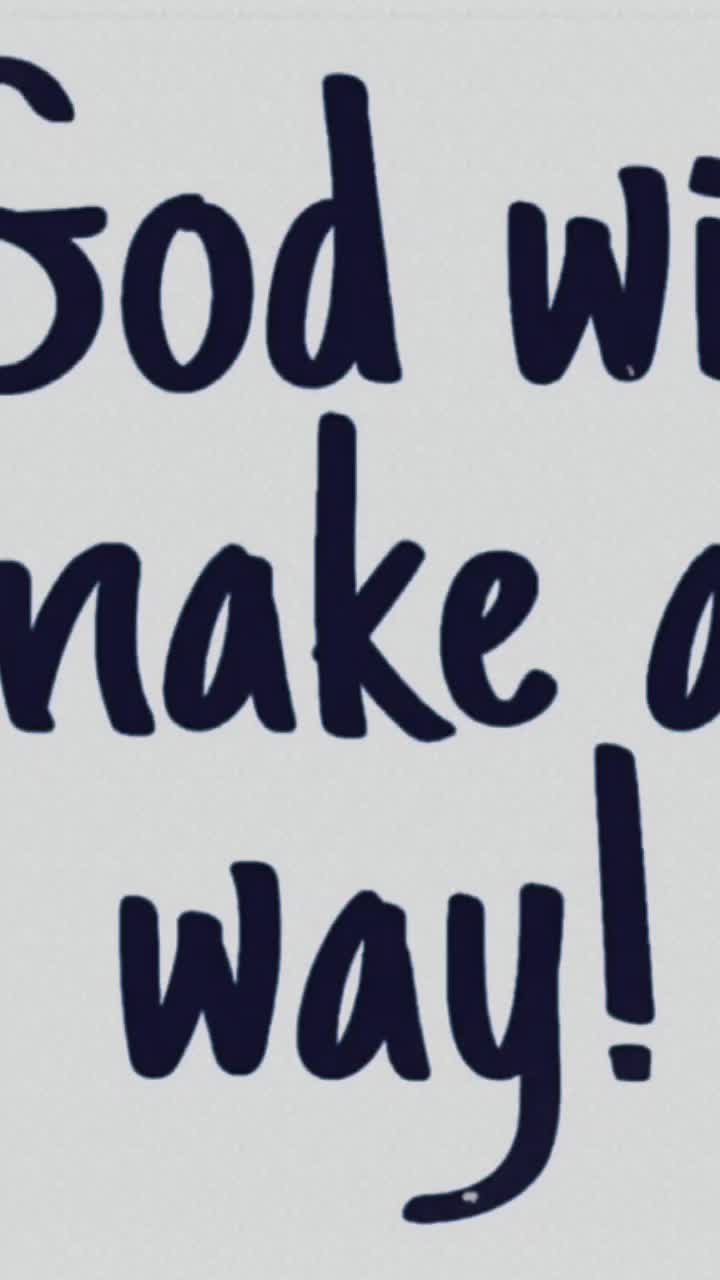 God wi
make a
way!